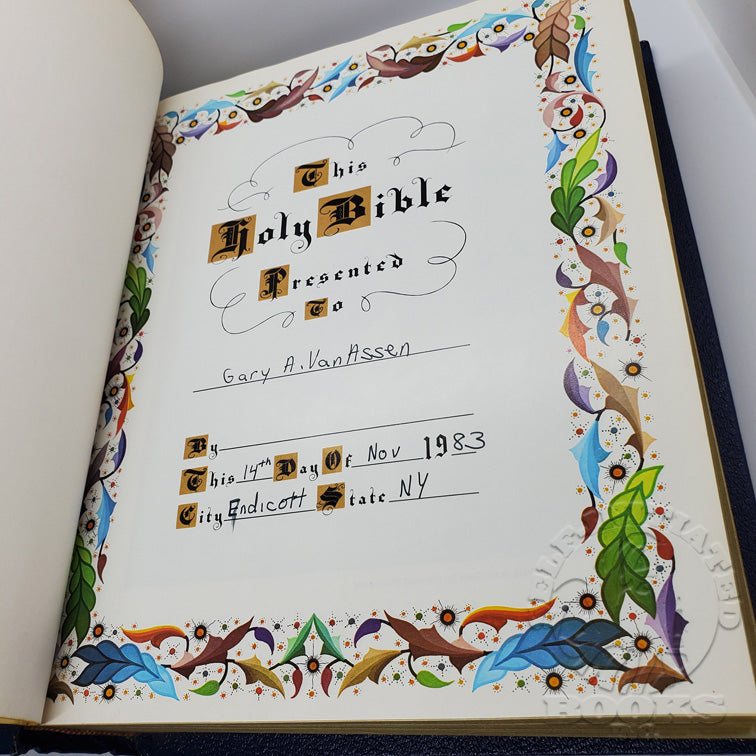 This
Holy Bible
Presented
To
Gary A. VanAssen
By
This 14th Day Of Nov 1983
City Endicott State NY
BOOKS